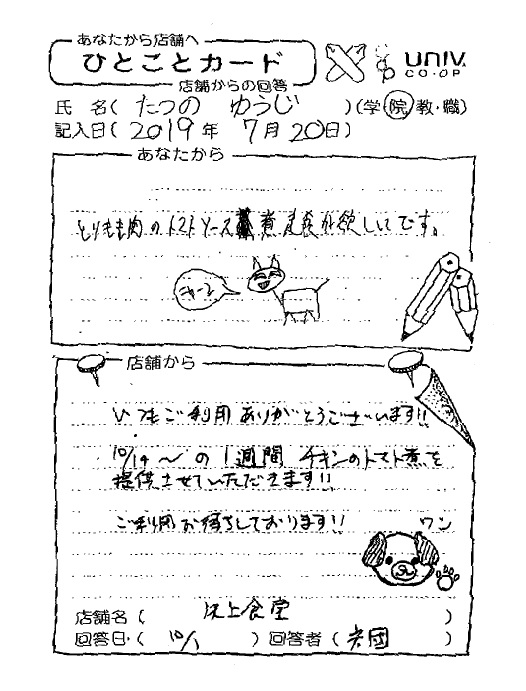 あなたから店舗へ
ひとことカード
店舗からの回答
UNIV.
CO-OP
氏 名( たつの ゆうじ )(学・院・教・職)
記入日( 2019年 7月 20日)
あなたから
とりもも肉のトマトソース煮 定食が欲しいです。
ニャーン
店舗から
いつもご利用ありがとうございます!!
10/14~の1週間 チキンのトマト煮を
提供させていただきます!!
ご利用お待ちしております!! ワン
店舗名( 上食堂 )
回答日・( 10/1 )回答者( )